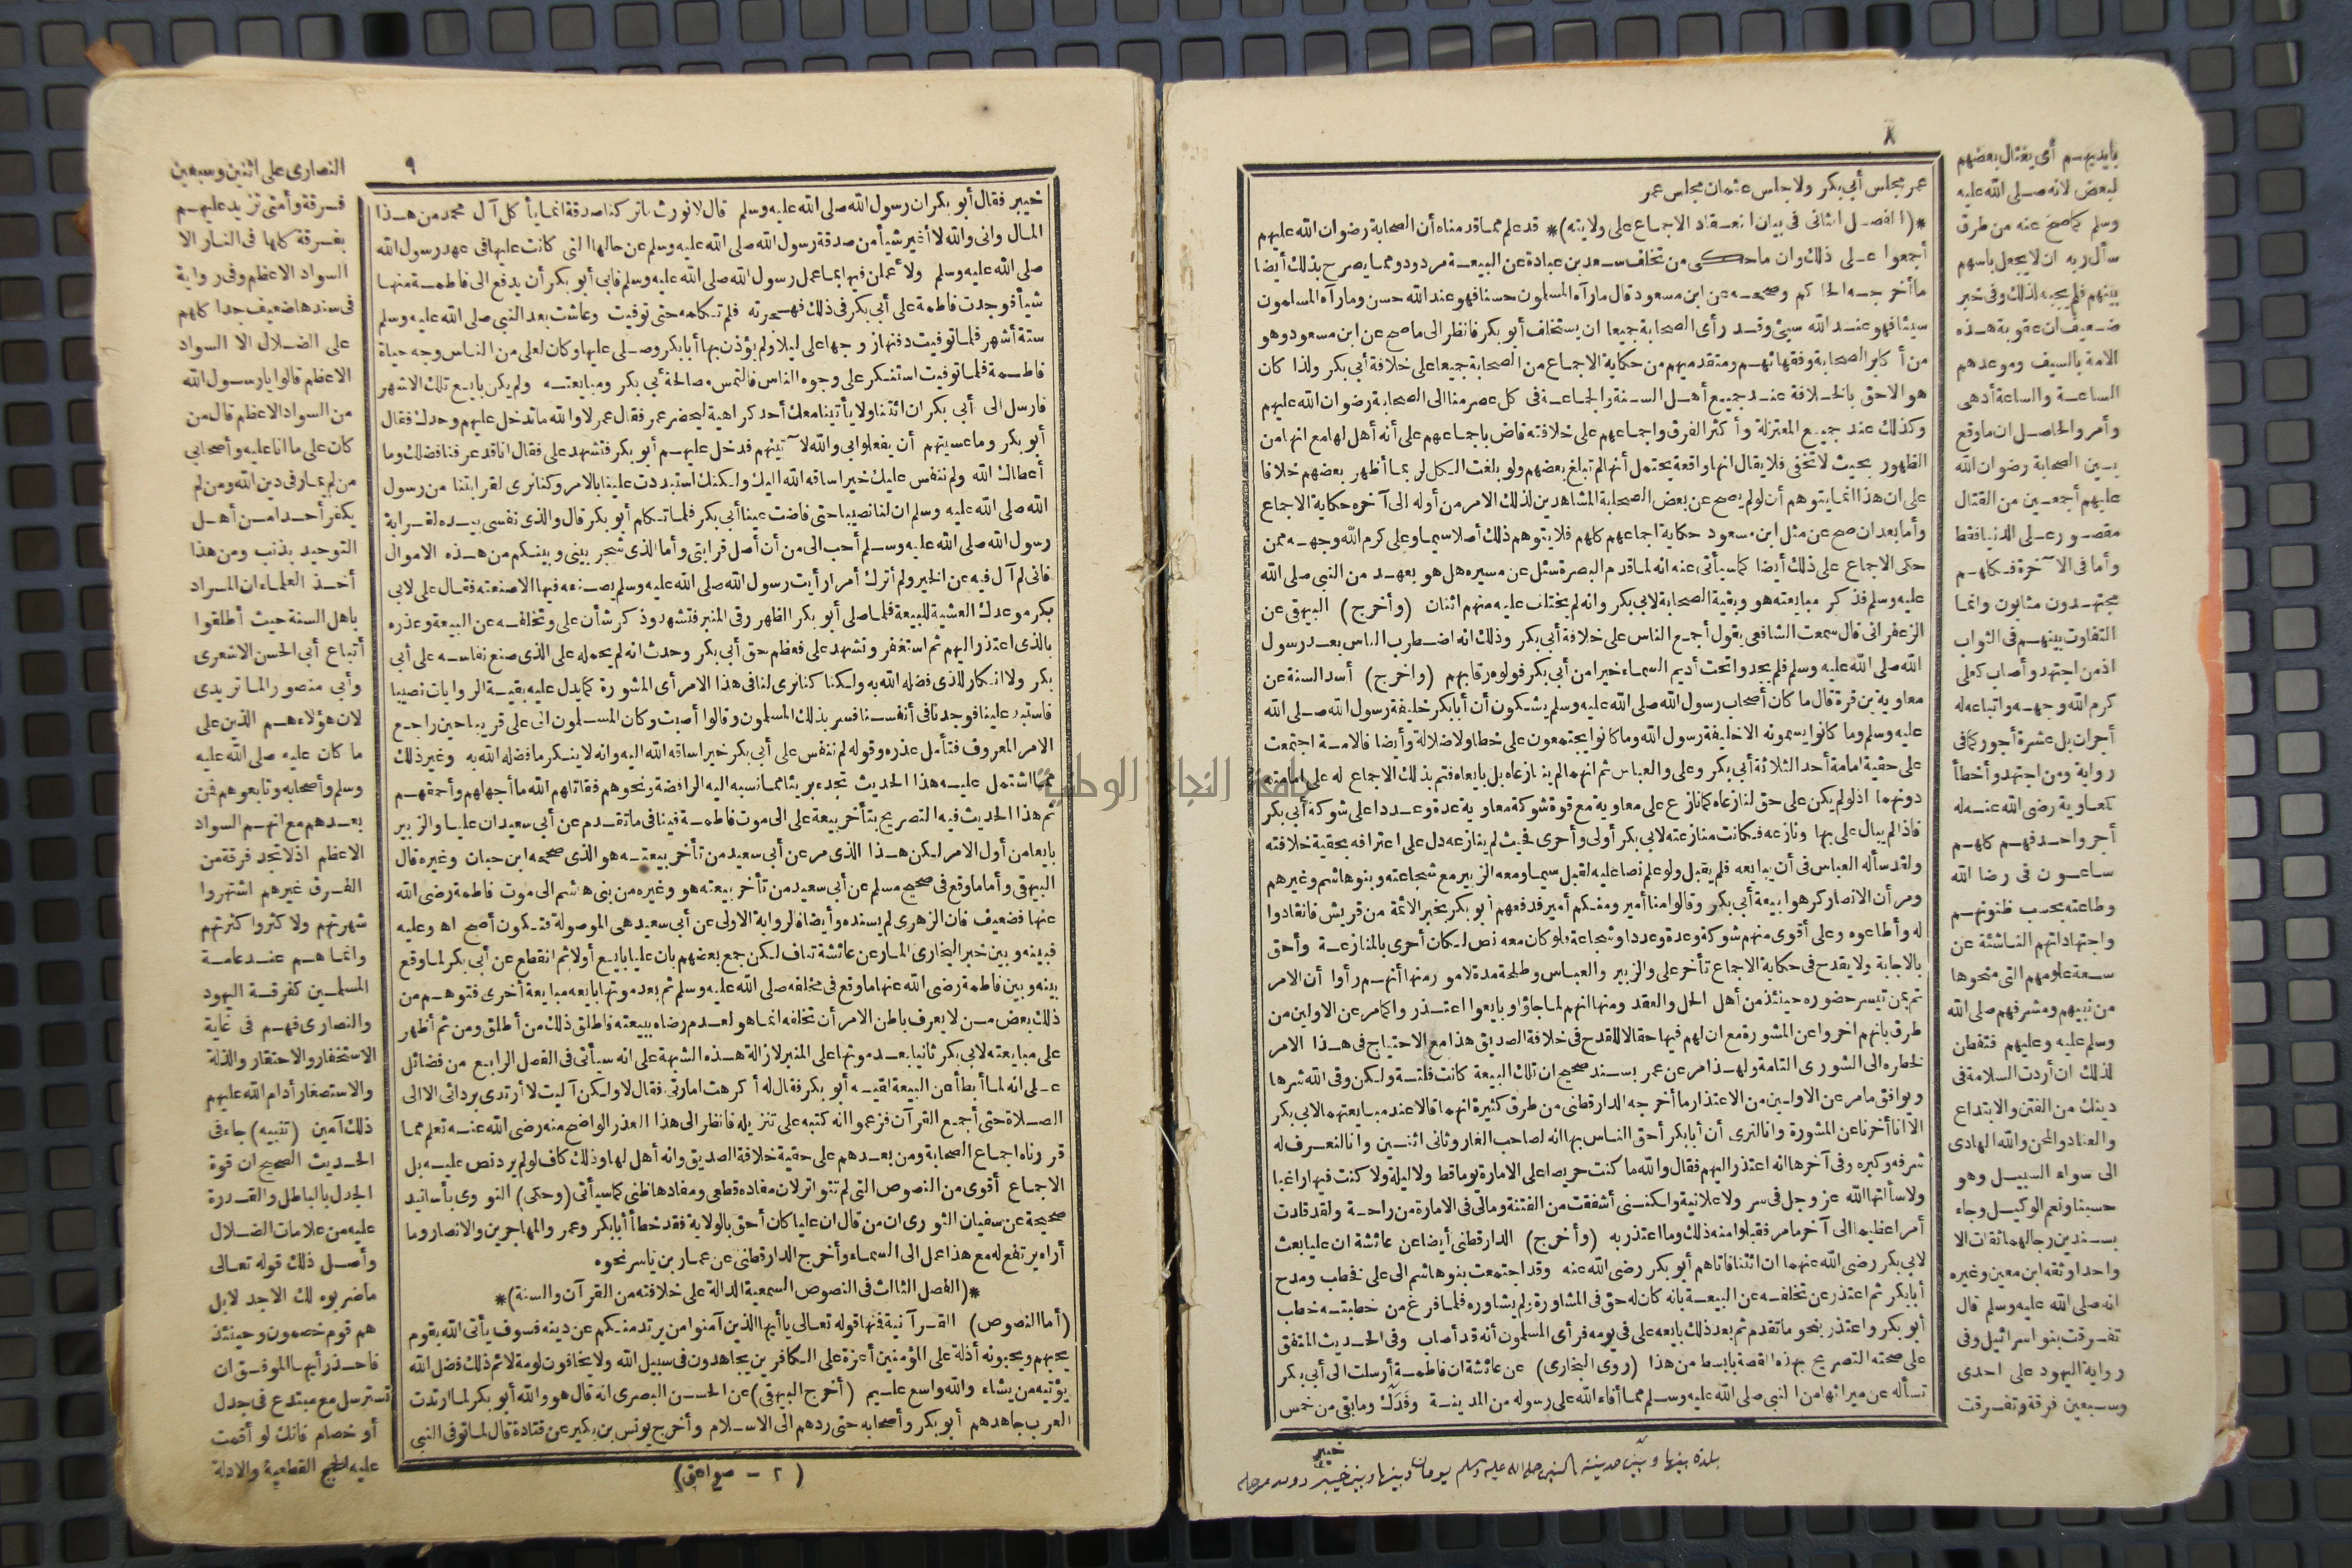 ٨
عمر مجلس أبي بكر ولا جلس عثمان مجلس عمر
*(الفصل الثاني في بيان انعقاد الاجماع على ولايته)* قد علم مما قدمناه أن الصحابة رضوان الله عليهم
أجمعوا على ذلك وان ما حكى من تخلف سعد بن عبادة عن البيعة مردود ومما يصرح بذلك أيضا
ما أخرجه الحاكم وصححه عن ابن مسعود قال ما رآه المسلمون حسنا فهو عند الله حسن وما رآه المسلمون
سيئا فهو عند الله سيئ وقد رأى الصحابة جميعا ان يستخلف أبو بكر فانظر الى ما صح عن ابن مسعود وهو
من أكابر الصحابة وفقهائهم ومتقدميهم من حكاية الاجماع من الصحابة جميعا على خلافة أبي بكر ولذا كان
هو الاحق بالخلافة عند جميع أهل السنة والجماعة في كل عصر منا الى الصحابة رضوان الله عليهم
وكذلك عند جميع المعتزلة وأكثر الفرق واجماعهم على خلافته قاض باجماعهم على أنه أهل لها مع انها من
الظهور بحيث لا تخفى فلا يقال انها واقعة يحتمل أنها لم تبلغ بعضهم ولو بلغت الكل لربما أظهر بعضهم خلافا
على ان هذا انما يتوهم أن لو لم يصح عن بعض الصحابة المشاهدين لذلك الامر من أوله الى آخره حكاية الاجماع
وأما بعد ان صح عن مثل ابن مسعود حكاية اجماعهم كلهم فلا يتوهم ذلك أصلا سيما وعلى كرم الله وجهه ممن
حكى الاجماع على ذلك أيضا كما سيأتي عنه انه لما قدم البصرة سئل عن مسيره هل هو بعهد من النبي صلى الله
عليه وسلم فذكر مبايعته هو وبقية الصحابة لابي بكر وانه لم يختلف عليه منهم اثنان (وأخرج) البيهقي عن
الزعفراني قال سمعت الشافعي يقول أجمع الناس على خلافة أبي بكر وذلك انه اضطرب الناس بعد رسول
الله صلى الله عليه وسلم فلم يجدوا تحت أديم السماء خيرا من أبي بكر فولوه رقابهم (واخرج) أسد السنة عن
معاوية بن قرة قال ما كان أصحاب رسول الله صلى الله عليه وسلم يشكون أن أبا بكر خليفة رسول الله صلى الله
عليه وسلم وما كانوا يسمونه الا خليفة رسول الله وما كانوا يجتمعون على خطا ولا ضلالة وأيضا فالامة اجتمعت
على حقية امامة أحد الثلاثة أبي بكر وعلى والعباس ثم انهما لم ينازعاه بل بايعاه فتم بذلك الاجماع له على امامته
دونهما اذ لو لم يكن على حق لنازعاه كما نازع على معاوية مع قوة شوكة معاوية عدة وعددا على شوكة أبي بكر
فاذا لم يبال على بها ونازعه فكانت منازعته لابي بكر أولى وأحرى فحيث لم ينازعه دل على اعترافه بحقية خلافته
ولقد سأله العباس في أن يبايعه فلم يقبل ولو علم نصا عليه لقبل سيما ومعه الزبير مع شجاعته وبنو هاشم وغيرهم
ومر أن الانصار كرهوا بيعة أبي بكر وقالوا منا أمير ومنكم أمير فدفعهم أبو بكر بخبر الائمة من قريش فانقادوا
له وأطاعوه وعلى أقوى منهم شوكة وعدة وعددا وشجاعة فلو كان معه نص لكان أحرى بالمنازعة وأحق
بالاجابة ولا يقدح في حكاية الاجماع تأخر على والزبير والعباس وطلحة مدة لامور منها أنهم رأوا أن الامر
تم بمن تيسر حضوره حينئذ من أهل الحل والعقد ومنها انهم لما جاؤا وبايعوا اعتذروا كما مر عن الاولين من
طرق بانهم اخروا عن المشورة مع ان لهم فيها حقا لا للقدح في خلافة الصديق هذا مع الاحتياج في هذا الامر
لخطره الى الشورى التامة ولهذا مر عن عمر بسند صحيح ان تلك البيعة كانت فلتة ولكن وقى الله شرها
ويوافق ما مر عن الاولين من الاعتذار ما أخرجه الدارقطني من طرق كثيرة انهما قالا عند مبايعتهما لابي بكر
الا انا أخرنا عن المشورة وانا لنرى أن أبا بكر أحق الناس بها انه لصاحب الغار وثاني اثنين وانا لنعرف له
شرفه وكبره وفي آخرها انه اعتذر اليهم فقال والله ما كنت حريصا على الامارة يوما قط ولا ليلة ولا كنت فيها راغبا
ولا سألتها الله عز وجل في سر ولا علانية ولكنني أشفقت من الفتنة ومالي في الامارة من راحة ولقد قلدت
أمرا عظيما الى آخر ما مر فقبلوا منه ذلك وما اعتذر به (وأخرج) الدارقطني أيضا عن عائشة ان عليا بعث
لابي بكر رضي الله عنهما ان ائتنا فاتاهم أبو بكر رضي الله عنه وقد اجتمعت بنو هاشم الى على فخطب ومدح
أبا بكر ثم اعتذر عن تخلفه عن البيعة بانه كان له حق في المشاورة ولم يشاوره فلما فرغ من خطبته خطب
أبو بكر واعتذر بنحو ما تقدم ثم بعد ذلك بايعه على في يومه فرأى المسلمون أنه قد أصاب وفي الحديث المتفق
على صحته التصريح بهذه القصة بابسط من هذا (روى البخاري) عن عائشة ان فاطمة أرسلت الى أبي بكر
تسأله عن ميراثها من النبي صلى الله عليه وسلم مما أفاء الله على رسوله من المدينة وفدك وما بقي من خمس
بأيديهم أي يغتال بعضهم
لبعض لانه صلى الله عليه
وسلم كما صح عنه من طرق
سأل ربه ان لا يجعل بأسهم
بينهم فلم يجبه لذلك وفي خبر
ضعيف ان عقوبة هذه
الامة بالسيف وموعدهم
الساعة والساعة أدهى
وأمر والحاصل ان ما وقع
بين الصحابة رضوان الله
عليهم أجمعين من القتال
مقصور على الدنيا فقط
وأما في الآخرة فكلهم
مجتهدون مثابون وانما
التفاوت بينهم في الثواب
اذ من اجتهد وأصاب كعلى
كرم الله وجهه واتباعه له
أجران بل عشرة أجور كما في
رواية ومن اجتهد وأخطأ
كمعاوية رضي الله عنه له
أجر واحد فهم كلهم
ساعون في رضا الله
وطاعته بحسب ظنونهم
واجتهاداتهم الناشئة عن
سعة علومهم التي منحوها
من نبيهم ومشرفهم صلى الله
وسلم عليه وعليهم فتفطن
لذلك ان أردت السلامة في
دينك من الفتن والابتداع
والعناد والمحن والله الهادي
الى سواء السبيل وهو
حسبنا ونعم الوكيل وجاء
بسندين رجالهما ثقات الا
واحدا وثقه ابن معين وغيره
انه صلى الله عليه وسلم قال
تفرقت بنو اسرائيل وفي
رواية اليهود على احدى
وسبعين فرقة وتفرقت
خيبر
بلدة بينها وبين مدينة النبي صلى الله عليه وسلم يومان وبينها وبين خيبر دون مرحلة
٩
خيبر فقال أبو بكر ان رسول الله صلى الله عليه وسلم قال لا نورث ما تركنا صدقة انما يأكل آل محمد من هذا
المال واني والله لا أغير شيأ من صدقة رسول الله صلى الله عليه وسلم عن حالها التي كانت عليها في عهد رسول الله
صلى الله عليه وسلم ولأعملن فيها بما عمل رسول الله صلى الله عليه وسلم فابى أبو بكر أن يدفع الى فاطمة منها
شيأ فوجدت فاطمة على أبي بكر في ذلك فهجرته فلم تكلمه حتى توفيت وعاشت بعد النبي صلى الله عليه وسلم
ستة أشهر فلما توفيت دفنها زوجها على ليلا ولم يؤذن بها أبا بكر وصلى عليها وكان لعلى من الناس وجه حياة
فاطمة فلما توفيت استنكر على وجوه الناس فالتمس مصالحة أبي بكر ومبايعته ولم يكن بايع تلك الاشهر
فارسل الى أبي بكر ان ائتنا ولا يأتينا معك أحد كراهية ليحضر عمر فقال عمر لا والله ما تدخل عليهم وحدك فقال
أبو بكر وما عسيتهم أن يفعلوا بي والله لآتينهم فدخل عليهم أبو بكر فتشهد على فقال انا قد عرفنا فضلك وما
أعطاك الله ولم ننفس عليك خيرا ساقه الله اليك ولكنك استبددت علينا بالامر وكنا نرى لقرابتنا من رسول
الله صلى الله عليه وسلم ان لنا نصيبا حتى فاضت عينا أبي بكر فلما تكلم أبو بكر قال والذي نفسي بيده لقرابة
رسول الله صلى الله عليه وسلم أحب الى من أن أصل قرابتي وأما الذي شجر بيني وبينكم من هذه الاموال
فاني لم آل فيه عن الخير ولم أترك أمرا رأيت رسول الله صلى الله عليه وسلم يصنعه فيها الا صنعته فقال على لابي
بكر موعدك العشية للبيعة فلما صلى أبو بكر الظهر رقى المنبر فتشهد وذكر شأن على وتخلفه عن البيعة وعذره
بالذي اعتذر اليهم ثم استغفر وتشهد على فعظم حق أبي بكر وحدث انه لم يحمله على الذي صنع نفاسة على أبي
بكر ولا انكار للذي فضله الله به ولكنا كنا نرى لنا في هذا الامر أي المشورة كما يدل عليه بقية الروايات نصيبا
فاستبد علينا فوجدنا في أنفسنا فسر بذلك المسلمون وقالوا أصبت وكان المسلمون الى على قريبا حين راجع
الامر المعروف فتأمل عذره وقوله لم ننفس على أبي بكر خيرا ساقه الله اليه وانه لا ينكر ما فضله الله به وغير ذلك
مما اشتمل عليه هذا الحديث تجده بريئا مما نسبه اليه الرافضة ونحوهم فقاتلهم الله ما أجهلهم وأحمقهم
ثم هذا الحديث فيه التصريح بتأخر بيعة على الى موت فاطمة فينافي ما تقدم عن أبي سعيد ان عليا والزبير
بايعا من أول الامر لكن هذا الذي مر عن أبي سعيد من تأخر بيعته هو الذي صححه ابن حبان وغيره قال
البيهقي وأما ما وقع في صحيح مسلم عن أبي سعيد من تأخر بيعته هو وغيره من بني هاشم الى موت فاطمة رضي الله
عنها فضعيف فان الزهري لم يسنده وأيضا فالرواية الاولى عن أبي سعيد هي الموصولة فتكون أصح اه وعليه
فبينه وبين خبر البخاري المار عن عائشة تناف لكن جمع بعضهم بان عليا بايع أولا ثم انقطع عن أبي بكر لما وقع
بينه وبين فاطمة رضي الله عنها ما وقع في مخلفه صلى الله عليه وسلم ثم بعد موتها بايعه مبايعة أخرى فتوهم من
ذلك بعض من لا يعرف باطن الامر أن تخلفه انما هو لعدم رضاه ببيعته فاطلق ذلك من أطلق ومن ثم أظهر
على مبايعته لابي بكر ثانيا بعد موتها على المنبر لازالة هذه الشبهة على انه سيأتي في الفصل الرابع من فضائل
على انه لما أبطأ عن البيعة لقيه أبو بكر فقال له أكرهت امارتي فقال لا ولكن آليت لا أرتدي بردائي الا الى
الصلاة حتى أجمع القرآن فزعموا انه كتبه على تنزيله فانظر الى هذا العذر الواضح منه رضي الله عنه تعلم مما
قررناه اجماع الصحابة ومن بعدهم على حقية خلافة الصديق وانه أهل لها وذلك كاف لو لم يرد نص عليه بل
الاجماع أقوى من النصوص التي لم تتواتر لان مفاده قطعي ومفادها ظني كما سيأتي (وحكى) النووي بأسانيد
صحيحة عن سفيان الثوري ان من قال ان عليا كان أحق بالولاية فقد خطأ أبا بكر وعمر والمهاجرين والانصار وما
أراه يرتفع له مع هذا عمل الى السماء وأخرج الدارقطني عن عمار بن ياسر نحوه
*(الفصل الثالث في النصوص السمعية الدالة على خلافته من القرآن والسنة)*
(أما النصوص) القرآنية فنها قوله تعالى يا أيها الذين آمنوا من يرتد منكم عن دينه فسوف يأتي الله بقوم
يحبهم ويحبونه أذلة على المؤمنين أعزة على الكافرين يجاهدون في سبيل الله ولا يخافون لومة لائم ذلك فضل الله
يؤتيه من يشاء والله واسع عليم (أخرج البيهقي) عن الحسن البصري انه قال هو والله أبو بكر لما ارتدت
العرب جاهدهم أبو بكر وأصحابه حتى ردهم الى الاسلام وأخرج يونس بن بكير عن قتادة قال لما توفي النبي
(٢ - صواعق)
النصارى على اثنتين وسبعين
فرقة وأمتي تزيد عليهم
بفرقة كلها في النار الا
السواد الاعظم وفي رواية
في سندها ضعيف جدا كلهم
على الضلال الا السواد
الاعظم قالوا يا رسول الله
من السواد الاعظم قال من
كان على ما انا عليه وأصحابي
من لم يمار في دين الله ومن لم
يكفر أحدا من أهل
التوحيد بذنب ومن هذا
أخذ العلماء ان المراد
باهل السنة حيث أطلقوا
أتباع أبي الحسن الاشعري
وأبي منصور الماتريدي
لان هؤلاء هم الذين على
ما كان عليه صلى الله عليه
وسلم وأصحابه وتابعوهم فمن
بعدهم مع انهم السواد
الاعظم اذ لا تجد فرقة من
الفرق غيرهم اشتهروا
شهرتهم ولا كثروا كثرتهم
وانما هم عند عامة
المسلمين كفرقة اليهود
والنصارى فهم في غاية
الاستخفار والاحتقار والذلة
والاستصغار أدام الله عليهم
ذلك آمين (تنبيه) جاء في
الحديث الصحيح ان قوة
الجدل بالباطل والقدرة
عليه من علامات الضلال
وأصل ذلك قوله تعالى
ما ضربوه لك الا جدلا بل
هم قوم خصمون وحينئذ
فاحذر أيها الموفق ان
تسترسل مع مبتدع في جدل
أو خصام فانك لو أقمت
عليه الحجج القطعية والادلة
جامعة النجاح الوطنية